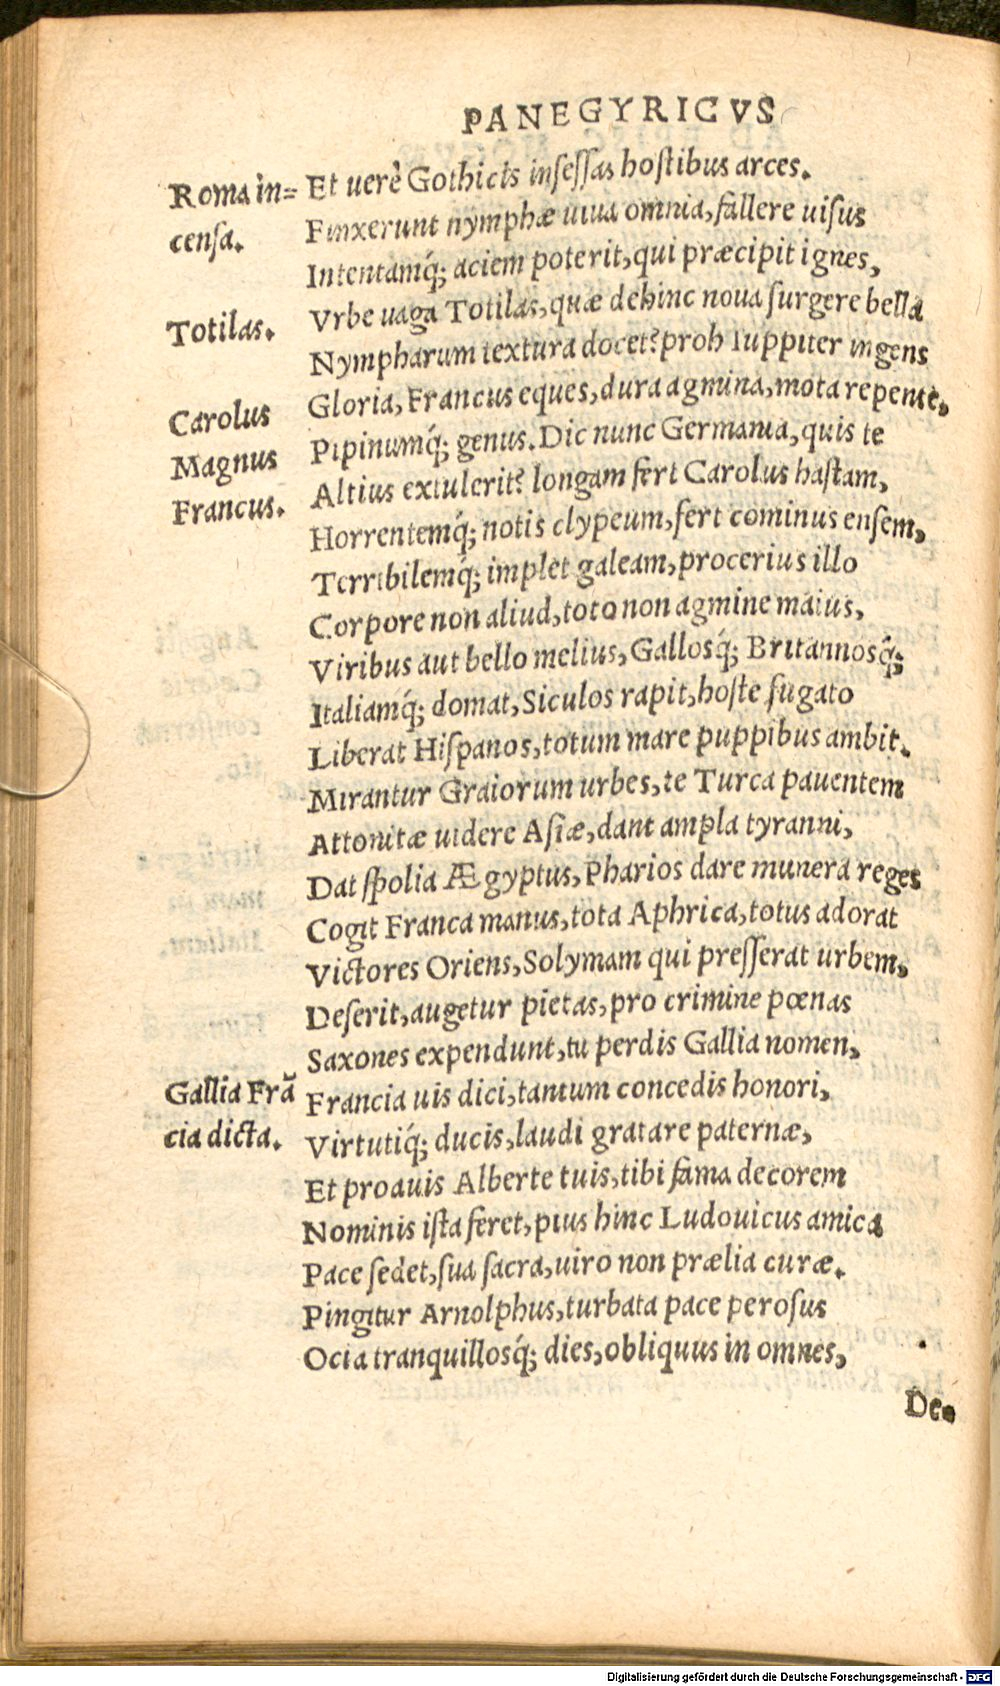 PANEGYRICVS
Roma in=
censa.
Totilas.
Carolus
Magnus
Francus.
Gallia Frā
cia dicta.
Et uerè Gothicis inseſſas hoſtibus arces.
Finxerunt nymphæ uiua omnia, fallere uiſus
Intentamq́; aciem poterit, qui præcipit ignes,
Vrbe uaga Totilas, quæ dehinc noua ſurgere bella
Nympharum textura docet? proh Iuppiter ingens
Gloria, Francus eques, dura agmina, mota repente,
Pipinumq́; genus. Dic nunc Germania, quis te
Altius extulerit? longam fert Carolus haſtam,
Horrentemq́; notis clypeum, fert cominus enſem,
Terribilemq́; implet galeam, procerius illo
Corpore non aliud, toto non agmine maius,
Viribus aut bello melius, Gallosq́; Britannosq́;
Italiamq́; domat, Siculos rapit, hoſte fugato
Liberat Hiſpanos, totum mare puppibus ambit.
Mirantur Graiorum urbes, te Turca pauentem
Attonitæ uidere Aſiæ, dant ampla tyranni,
Dat ſpolia Ægyptus, Pharios dare munera reges
Cogit Franca manus, tota Aphrica, totus adorat
Victores Oriens, Solymam qui preſſerat urbem,
Deſerit, augetur pietas, pro crimine pœnas
Saxones expendunt, tu perdis Gallia nomen,
Francia uis dici, tantum concedis honori,
Virtutiq́; ducis, laudi gratare paternæ,
Et proauis Alberte tuis, tibi fama decorem
Nominis iſta feret, pius hinc Ludouicus amica
Pace ſedet, ſua ſacra, uiro non prælia curæ.
Pingitur Arnolphus, turbata pace peroſus
Ocia tranquillosq́; dies, obliquus in omnes,
De-
Digitalisierung gefördert durch die Deutsche Forschungsgemeinschaft - DFG